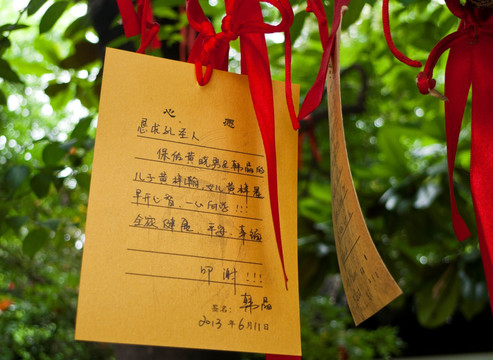 心 愿
恳求孔圣人
保佑黄晓勇及韩晶的
儿子黄梓瀚、女儿黄梓
早开心智,一心向学!!!
全家健康、平安、幸福
叩谢!!!
签名: 韩晶
2013年6月11日